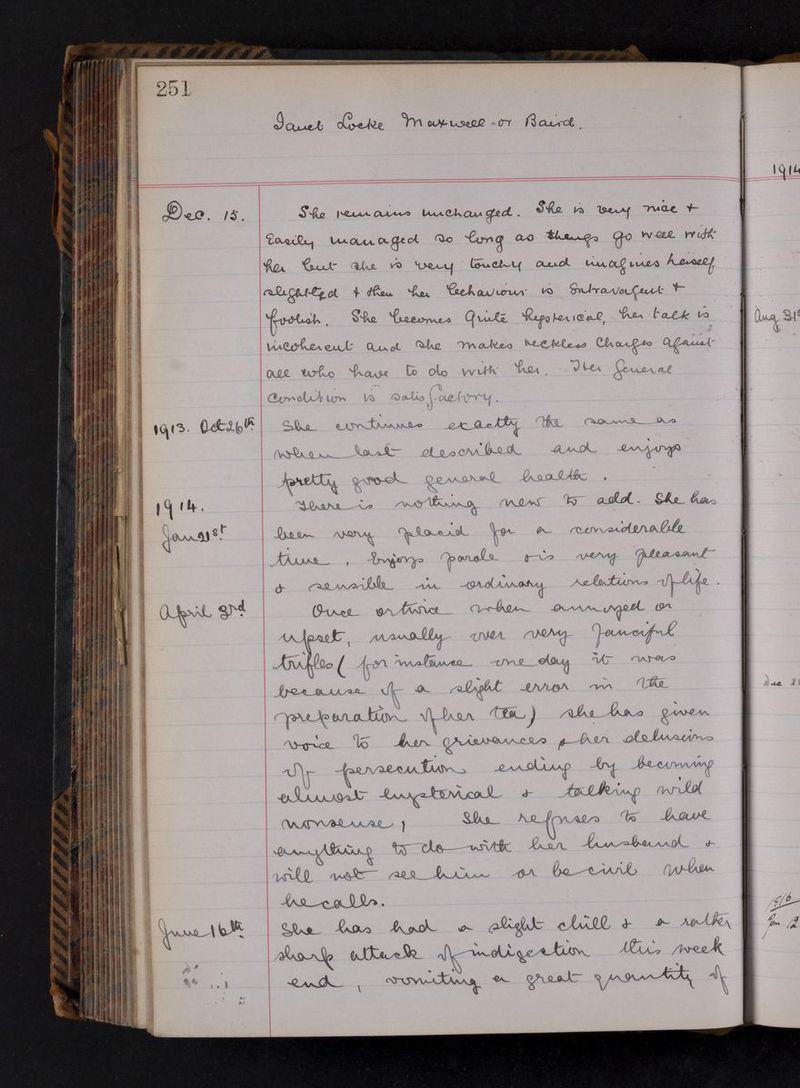 251
Janet Locke Maxwell or Baird.
Dec. 15. She remains unchanged. She is very nice &
easily managed so long as things go well with
her but she is very touchy and imagines herself
slighted & then her behaviour is extravagent &
foolish. She becomes quite hysterical, her talk is
incoherent and she makes reckless charges against
all who have to do with her. Her general
condition is satisfactory.
1913. Oct 26th She continues exactly the same as
when last described and enjoys
pretty good general health.
1914. There is nothing new to add. She has
Jan 21st been very placid for a considerable
time, enjoys parole & is very pleasant
& sensible in ordinary relations of life.
April 3rd Once or twice when annoyed or
upset, usually over very fanciful
trifles (for instance one day it was
because of a slight error in the
preparation of her tea) she has given
voice to her grievances & her delusions
of persecution ending by becoming
almost hysterical & talking wild
nonsense, She refuses to have
anything to do with her husband &
will not see him or be civil when
he calls.
June 16th She has had a slight chill & a rather
sharp attack of indigestion this week
end, vomiting a great quantity of
1914
Aug 31st
Dec
1916
Jan 12